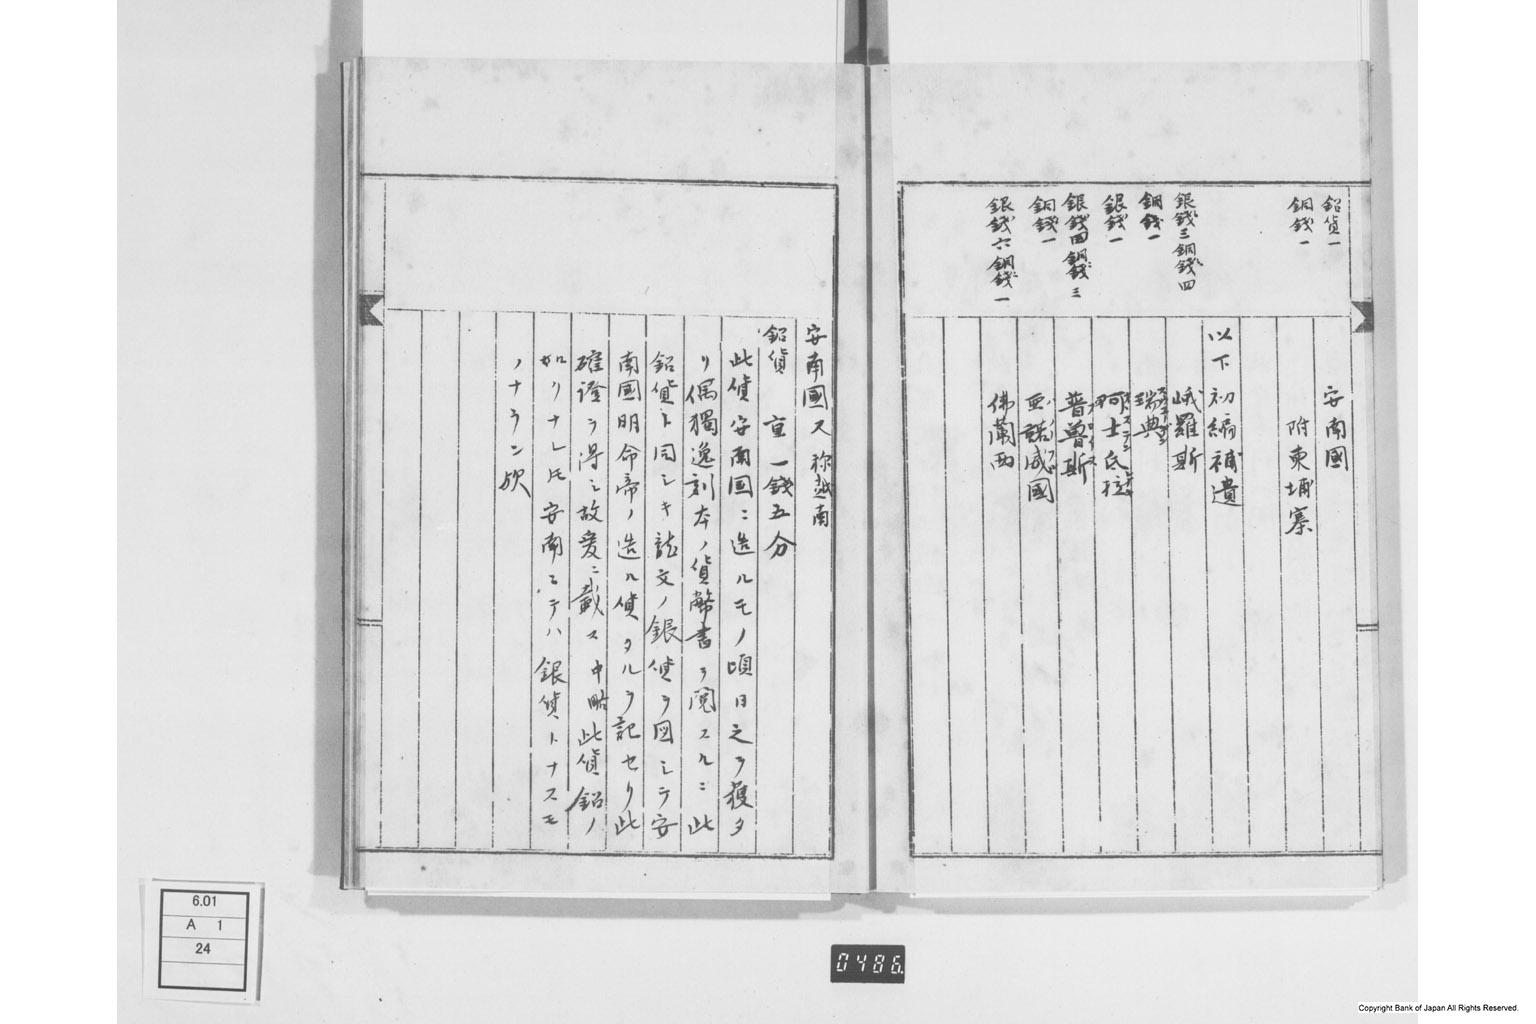 鉛貨一
銅錢一
銀錢三銅錢四
銅錢一
銀錢一
銀錢四銅錢三
銅錢一
銀錢六銅錢一
安南國
附柬埔寨
以下初編補遺
峨羅斯
瑞典
スウェーデン
阿士氏拉
普魯斯
亜諾威國
佛蘭西
安南國又称越南
鉛貨 重一錢五分
此貨安南国ニ造ルモノ頃日之ヲ獲タ
リ偶獨逸刻本ノ貨幣書ヲ閲スルニ此
鉛貨ト同シキ龍文ノ銀貨ヲ図シテ安
南国明命帝ノ造ル貨タルヲ記セリ此
確證ヲ得シ故爰ニ載ス中略此貨鉛ノ
如クナレ𪜈安南ニテハ銀貨トナスモ
ノナラン欤
6.01
A 1
24
0486
Copyright Bank of Japan All Rights Reserved.